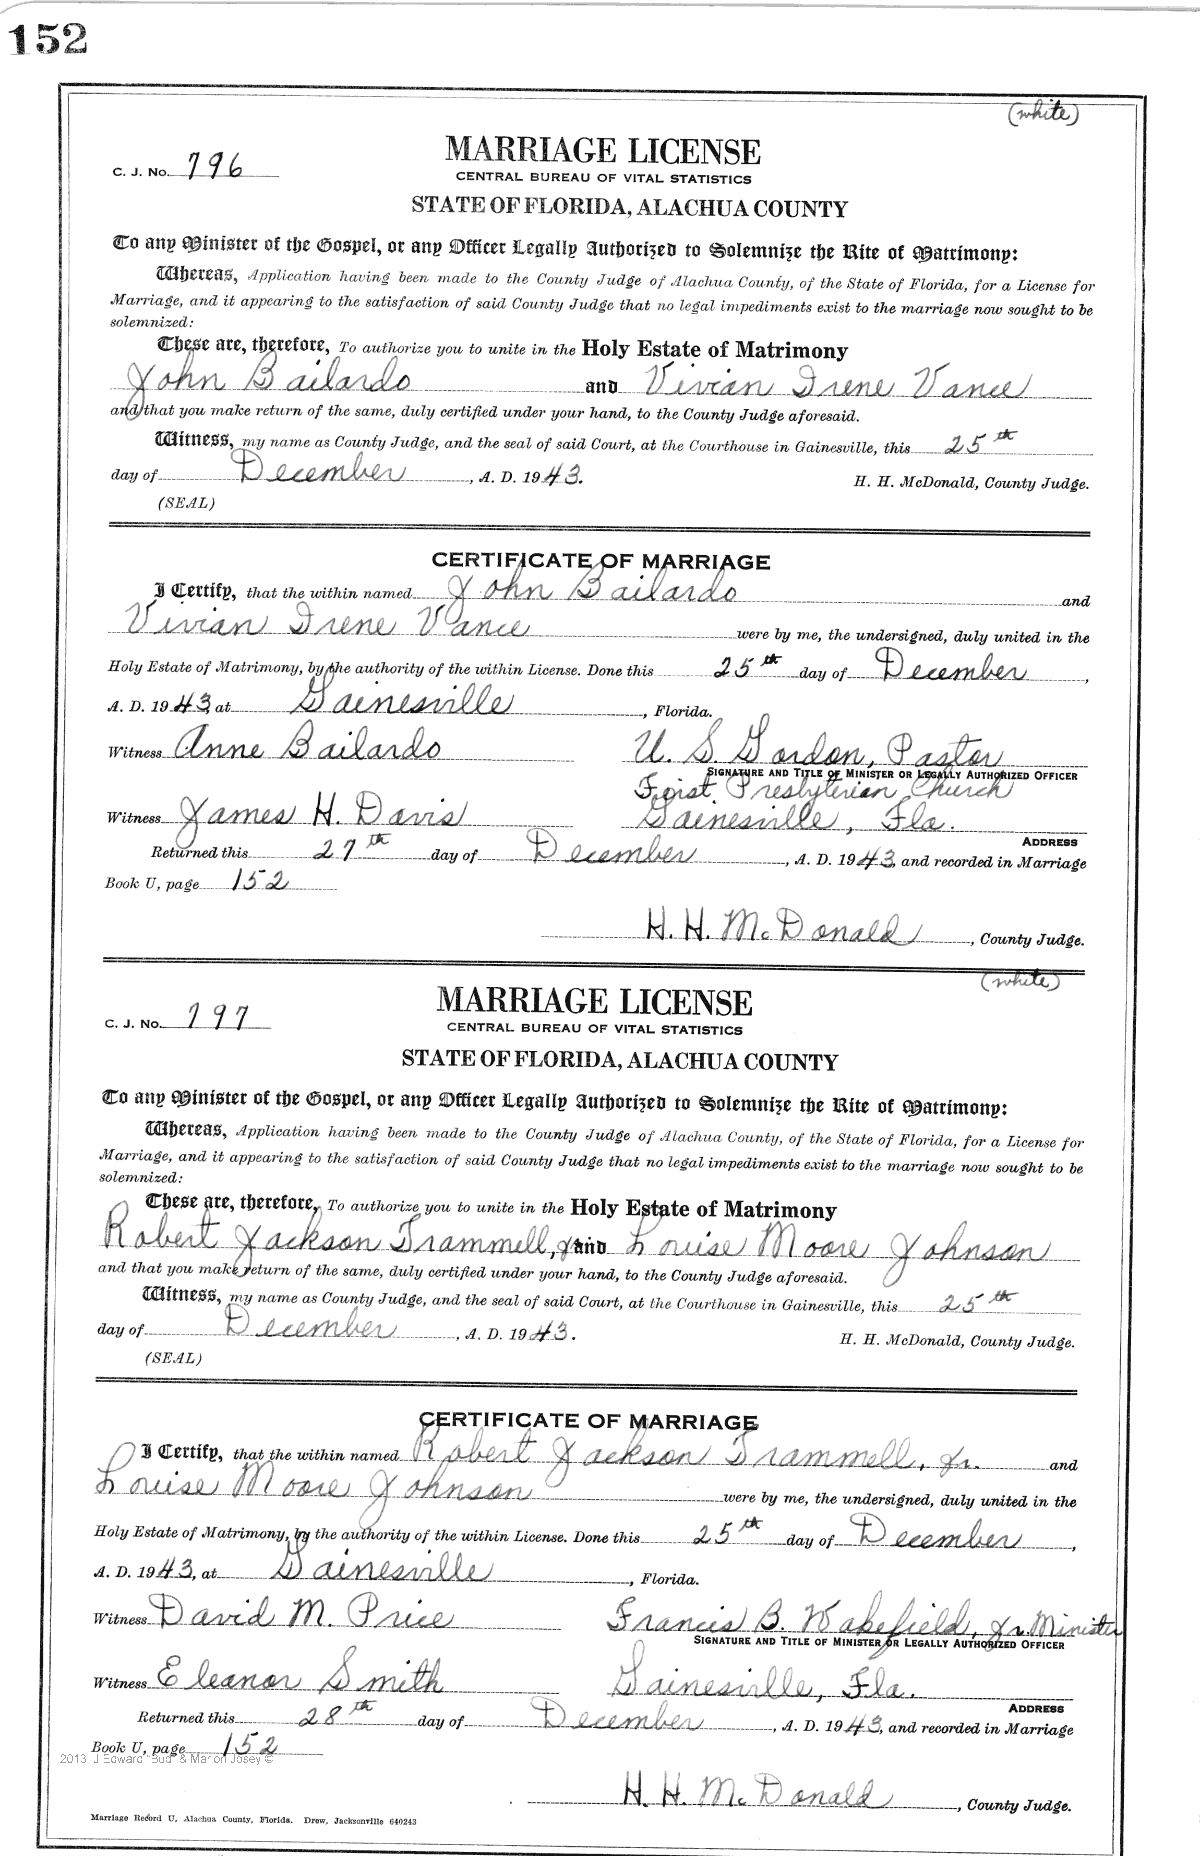 152
(white)
MARRIAGE LICENSE
C. J. No. 796
CENTRAL BUREAU OF VITAL STATISTICS
STATE OF FLORIDA, ALACHUA COUNTY
To any Minister of the Gospel, or any Officer Legally Authorized to Solemnize the Rite of Matrimony:
Whereas, Application having been made to the County Judge of Alachua County, of the State of Florida, for a License for
Marriage, and it appearing to the satisfaction of said County Judge that no legal impediments exist to the marriage now sought to be
solemnized:
These are, therefore, To authorize you to unite in the Holy Estate of Matrimony
John Bailardo and Vivian Irene Vance
and that you make return of the same, duly certified under your hand, to the County Judge aforesaid.
Witness, my name as County Judge, and the seal of said Court, at the Courthouse in Gainesville, this 25th
day of December, A. D. 1943. H. H. McDonald, County Judge.
(SEAL)
CERTIFICATE OF MARRIAGE
I Certify, that the within named John Bailardo and
Vivian Irene Vance were by me, the undersigned, duly united in the
Holy Estate of Matrimony, by the authority of the within License. Done this 25th day of December,
A. D. 1943, at Gainesville, Florida.
Witness Anne Bailardo U. S. Gordon, Pastor
SIGNATURE AND TITLE OF MINISTER OR LEGALLY AUTHORIZED OFFICER
First Presbyterian Church
Witness James H. Davis Gainesville, Fla.
ADDRESS
Returned this 27th day of December, A. D. 1943, and recorded in Marriage
Book U, page 152
H. H. McDonald, County Judge.
(white)
MARRIAGE LICENSE
C. J. No. 797
CENTRAL BUREAU OF VITAL STATISTICS
STATE OF FLORIDA, ALACHUA COUNTY
To any Minister of the Gospel, or any Officer Legally Authorized to Solemnize the Rite of Matrimony:
Whereas, Application having been made to the County Judge of Alachua County, of the State of Florida, for a License for
Marriage, and it appearing to the satisfaction of said County Judge that no legal impediments exist to the marriage now sought to be
solemnized:
These are, therefore, To authorize you to unite in the Holy Estate of Matrimony
Robert Jackson Trammell, Jr. and Louise Moore Johnson
and that you make return of the same, duly certified under your hand, to the County Judge aforesaid.
Witness, my name as County Judge, and the seal of said Court, at the Courthouse in Gainesville, this 25th
day of December, A. D. 1943. H. H. McDonald, County Judge.
(SEAL)
CERTIFICATE OF MARRIAGE
I Certify, that the within named Robert Jackson Trammell, Jr. and
Louise Moore Johnson were by me, the undersigned, duly united in the
Holy Estate of Matrimony, by the authority of the within License. Done this 25th day of December,
A. D. 1943, at Gainesville, Florida.
Witness David M. Price Francis B. Wakefield, Jr. Minister
SIGNATURE AND TITLE OF MINISTER OR LEGALLY AUTHORIZED OFFICER
Witness Eleanor Smith Gainesville, Fla.
ADDRESS
Returned this 28th day of December, A. D. 1943, and recorded in Marriage
Book U, page 152
2013 J Edward "Bud" & Marion Josey ©
H. H. McDonald, County Judge.
Marriage Record U, Alachua County, Florida. Drew, Jacksonville 640243